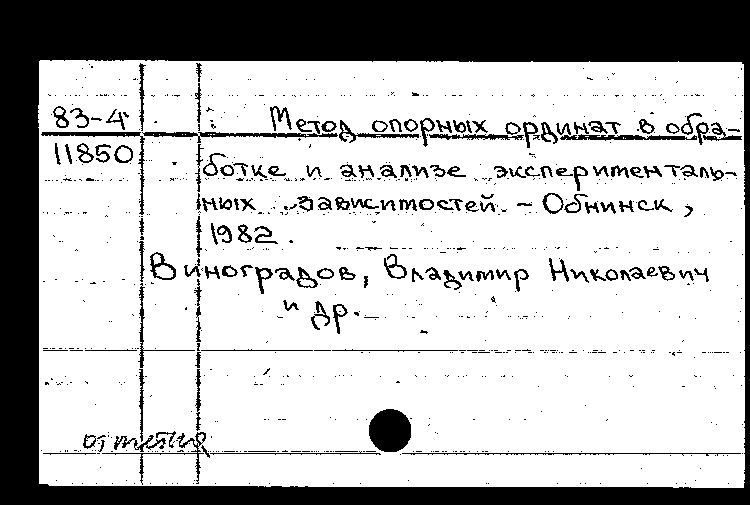 83-4 Метод опорных ординат в обра-
11850 ботке и анализе эксперименталь-
ных зависимостей. - Обнинск,
1982.
Виноградов, Владимир Николаевич
и др.